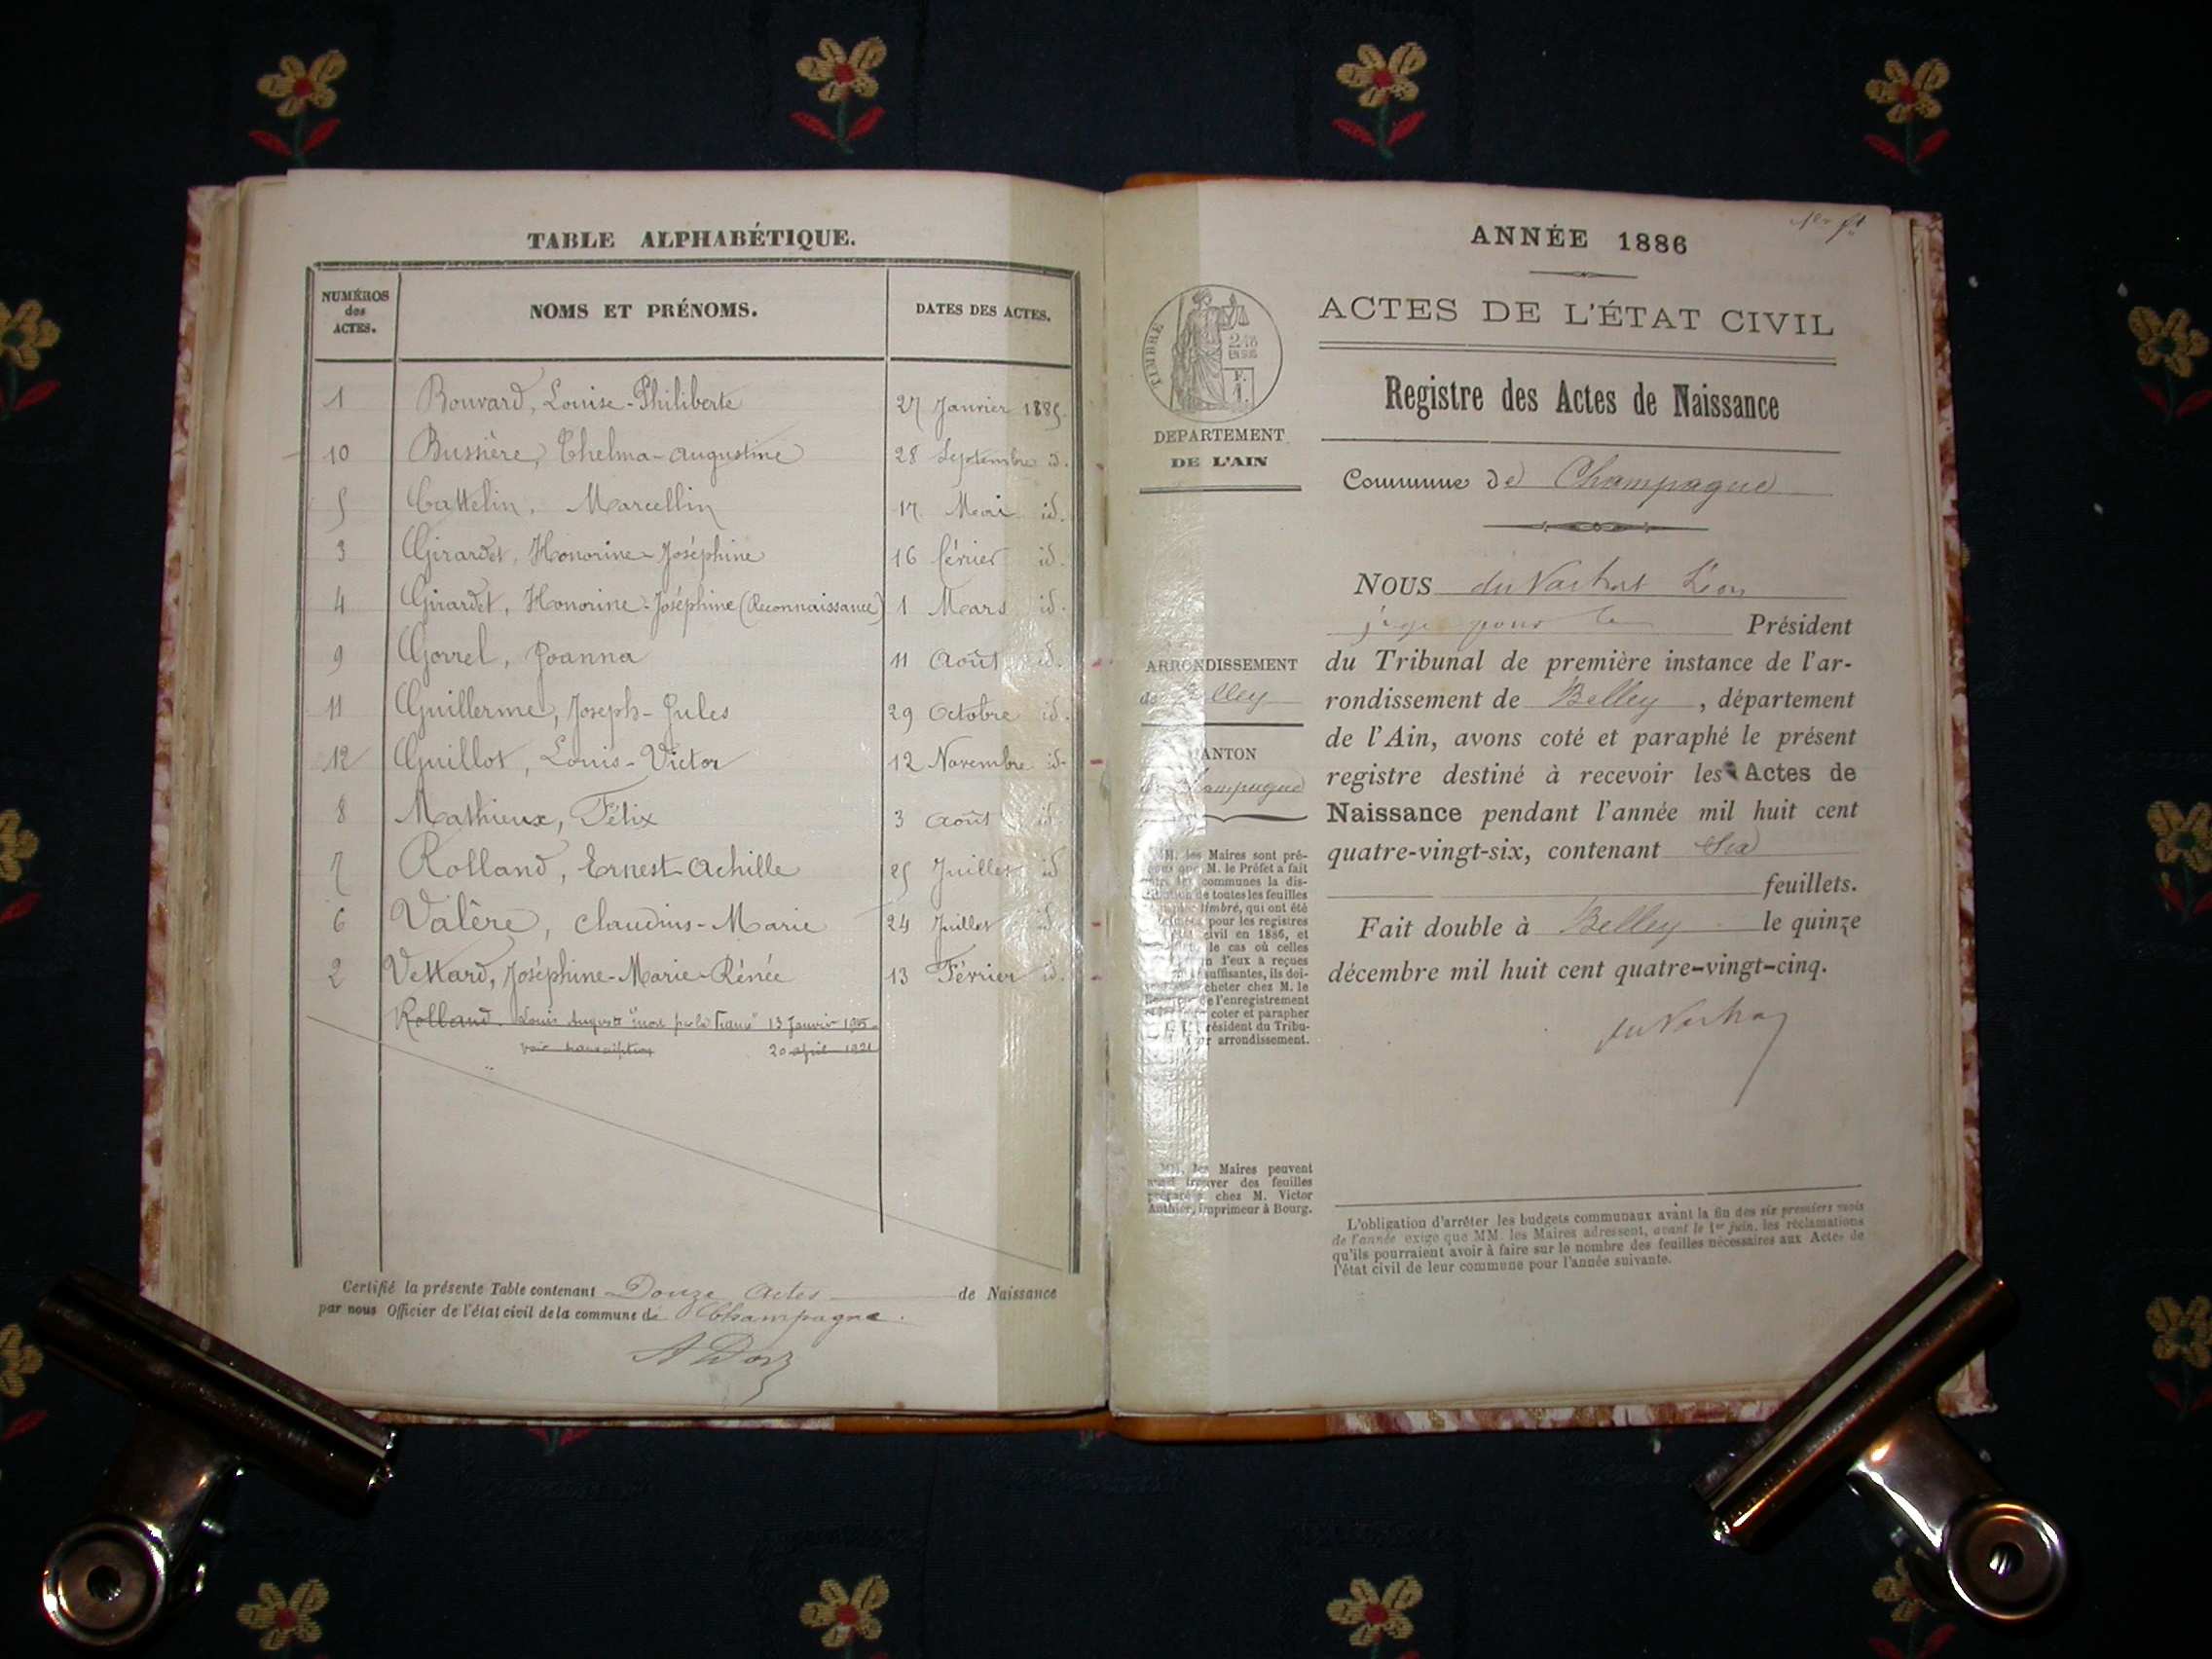 TABLE ALPHABÉTIQUE.
NUMÉROS des ACTES.
NOMS ET PRÉNOMS.
DATES DES ACTES.
1 Bouvard, Louise-Philiberte 27 Janvier 1885.
10 Bussière, Thelma-Augustine 28 Septembre id.
5 Cattelin, Marcellin 17 Mai id.
3 Girardet, Honorine-Joséphine 16 février id.
4 Girardet, Honorine-Joséphine (Reconnaissance) 1 Mars id.
9 Gorrel, Joanna 11 Août id.
11 Guillerme, Joseph-Jules 29 Octobre id.
12 Guillot, Louis-Victor 12 Novembre id.
8 Mathieux, Félix 3 Août id.
7 Rolland, Ernest-Achille 25 Juillet id.
6 Valère, Claudius-Marie 24 Juillet id.
2 Vettard, Joséphine-Marie-Rénée 13 Février id.
Rolland Louis Auguste "mort 13 Janvier
voir transcription 20 april 1921
Certifié la présente Table contenant Douze Actes de Naissance
par nous Officier de l'état civil de la commune de Champagne.
ANNÉE 1886
ACTES DE L'ÉTAT CIVIL
TIMBRE
Registre des Actes de Naissance
DEPARTEMENT
DE L'AIN
Commune de Champagne
NOUS Léon
juge pour le Président
ARRONDISSEMENT
de Belley
CANTON
Champagne
du Tribunal de première instance de l'ar-
rondissement de Belley, département
de l'Ain, avons coté et paraphé le présent
registre destiné à recevoir les Actes de
Naissance pendant l'année mil huit cent
quatre-vingt-six, contenant Six
feuillets.
Fait double à Belley le quinze
décembre mil huit cent quatre-vingt-cinq.
MM. les Maires sont pré-
M. le Préfet a fait
communes la dis-
de toutes les feuilles
timbré, qui ont été
pour les registres
civil en 1886, et
le cas où celles
d'eux a reçues
suffisantes, ils doi-
acheter chez M. le
de l'enregistrement
coter et parapher
Président du Tribu-
arrondissement.
MM. les Maires peuvent
trouver des feuilles
chez M. Victor
Authier, imprimeur à Bourg.
L'obligation d'arrêter les budgets communaux avant la fin des six premiers mois
de l'année exige que MM. les Maires adressent, avant le 1er juin, les réclamations
qu'ils pourraient avoir à faire sur le nombre des feuilles nécessaires aux Actes de
l'état civil de leur commune pour l'année suivante.